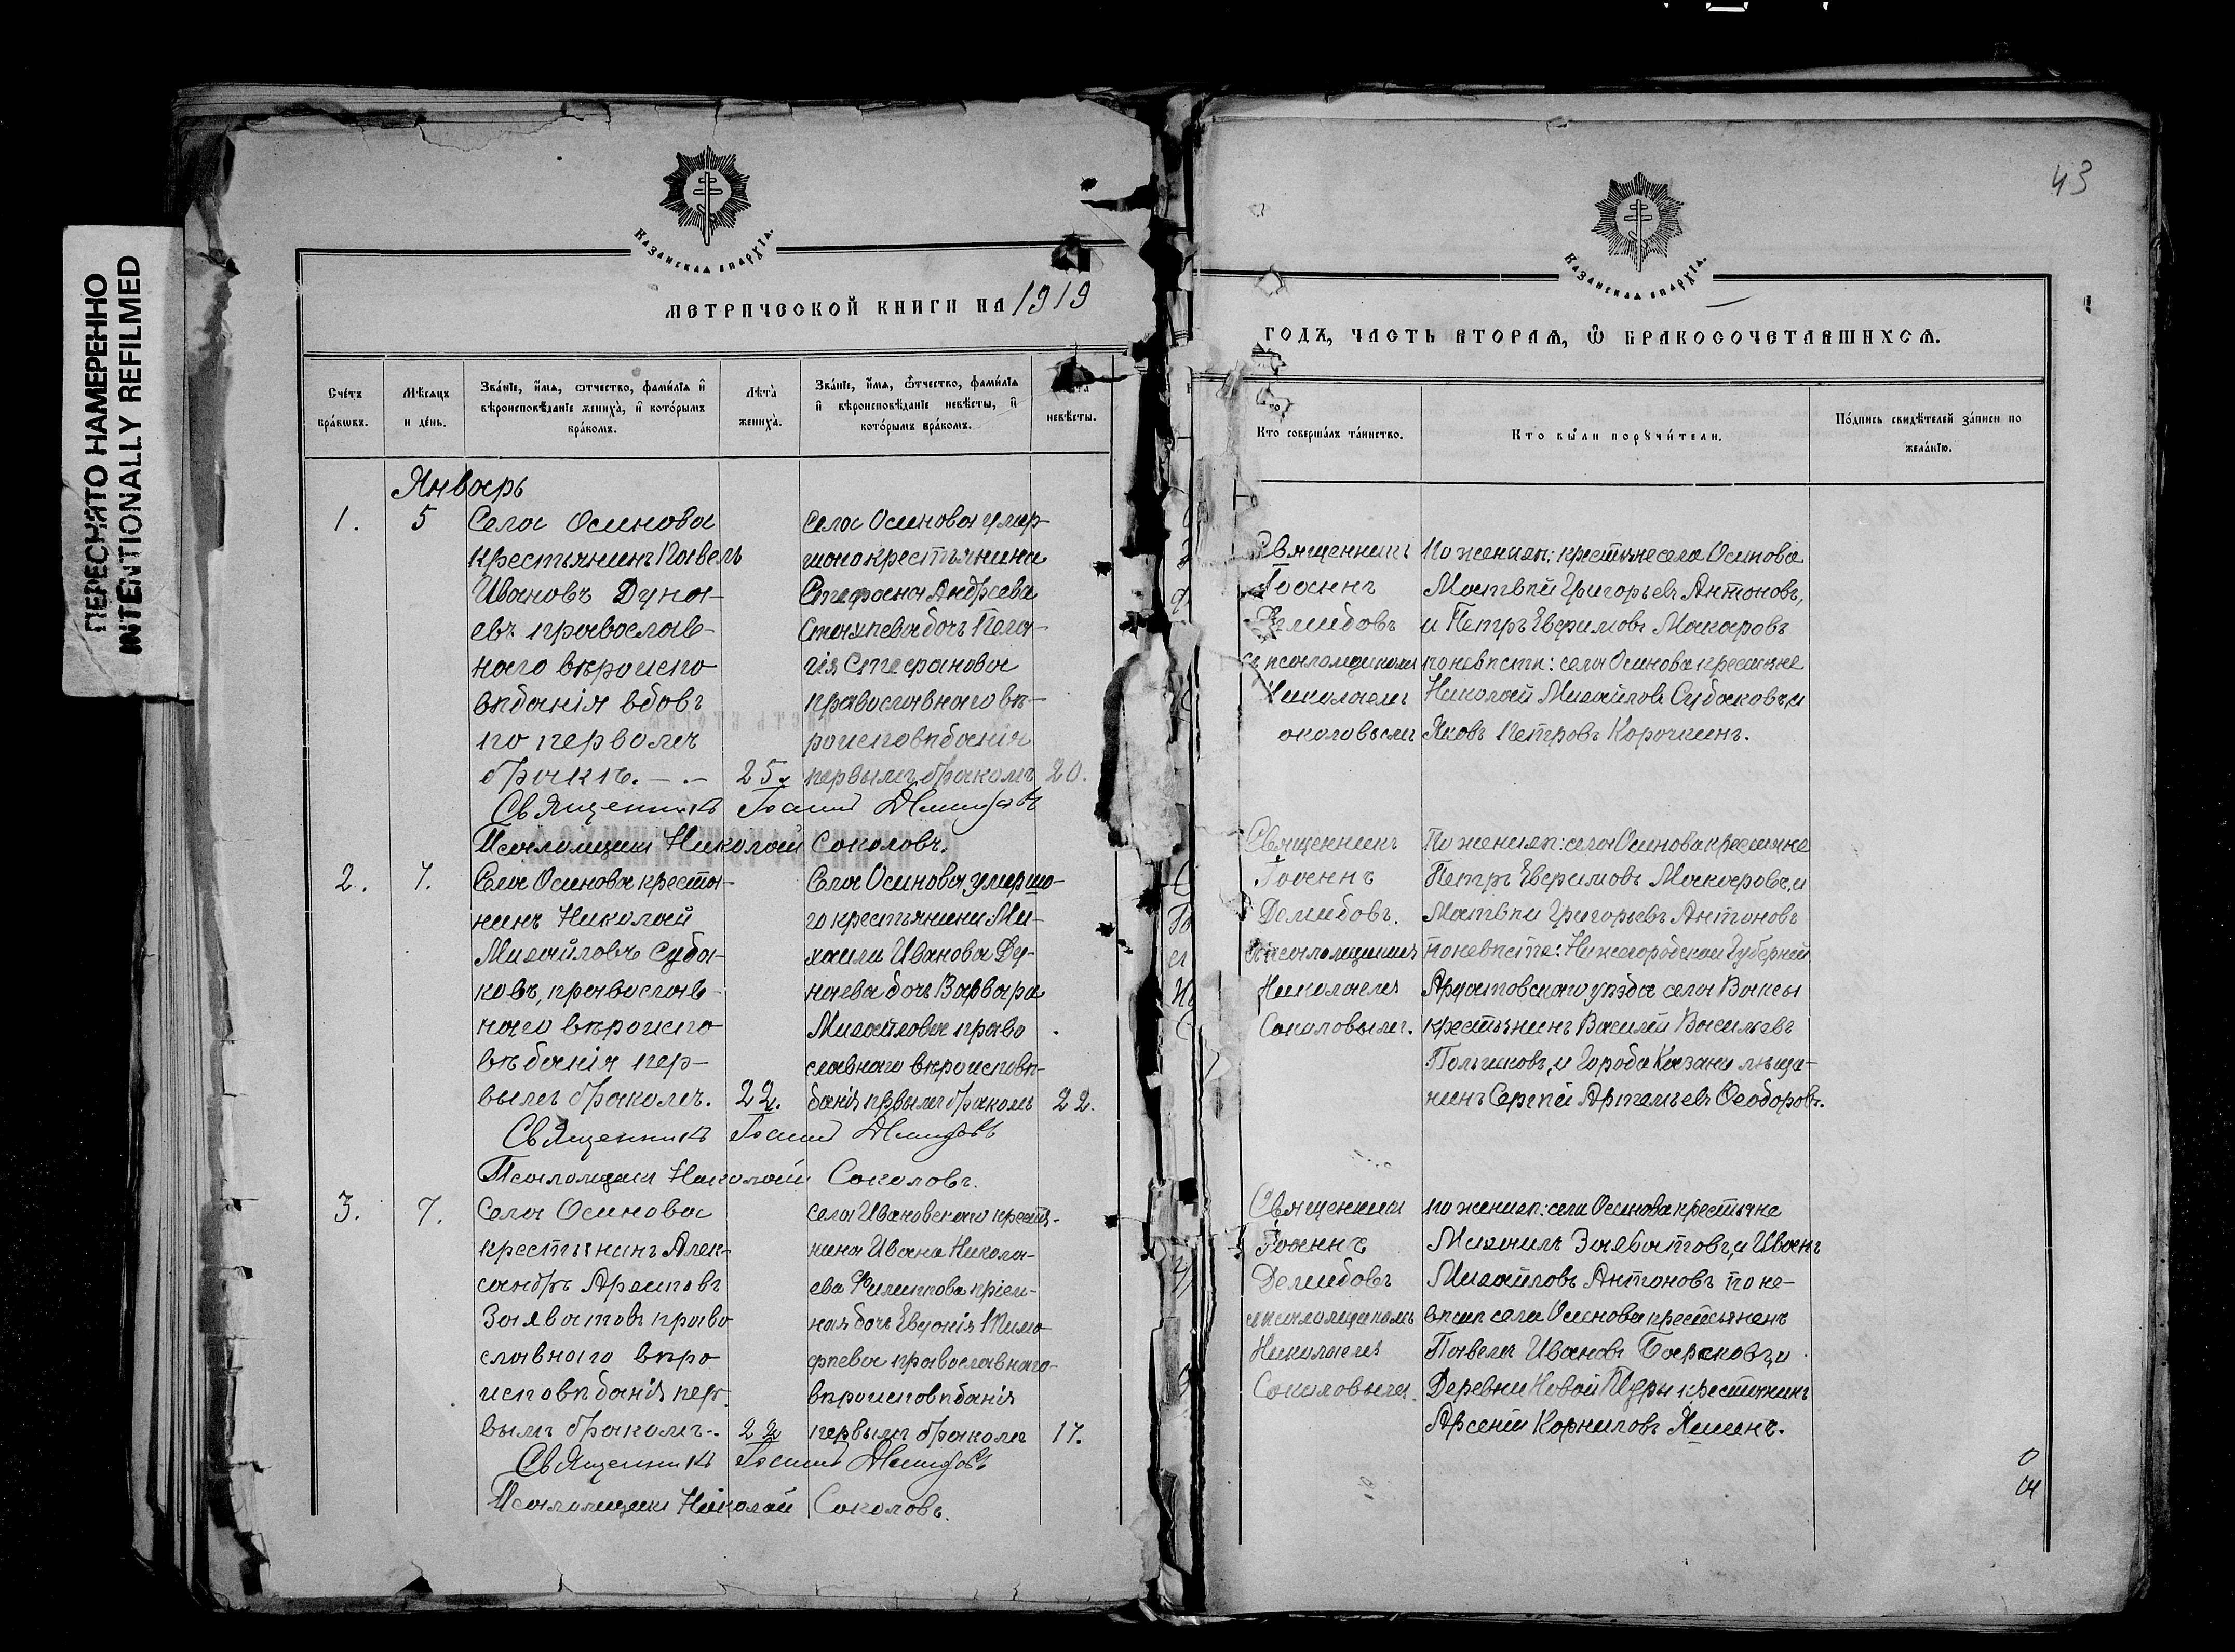 43
ПЕРЕСНЯТО НАМЕРЕННО
INTENTIONALLY REFILMED
Казанская епархія.
МЕТРИЧЕСКОЙ КНИГИ НА 1919
Счетъ браковъ.
Мѣсяцъ и день.
Званіе, имя, отчество, фамилія и вѣроисповѣданіе жениха, и которымъ бракомъ.
Лѣта жениха.
Званіе, имя, отчество, фамилія и вѣроисповѣданіе невѣсты, и которымъ бракомъ.
невѣсты.
Январь
1.
5
Села Осинова
крестьянинъ Павелъ
Ивановъ Дуна-
евъ православ-
наго вѣроиспо
вѣданія вдовъ
по первомъ
бракѣ. — . —
25.
села Осинова умер-
шаго крестьянина
Стефана Андреева
дочь Пела-
гія Стефанова
православнаго вѣ-
роисповѣданія
первымъ бракомъ
20.
Священникъ Іоаннъ Демидовъ
Псаломщикъ Николай Соколовъ.
2.
7.
Села Осинова крестья-
нинъ Николай
Михайловъ Суда-
ковъ, православ-
наго вѣроиспо
вѣданія пер-
вымъ бракомъ.
22.
Села Осинова умершо-
го крестьянина Ми-
хаила Иванова Ду-
наева дочь Варвара
Михайлова право
славнаго вѣроисповѣ-
данія первымъ бракомъ
22.
Священникъ Іоаннъ Демидовъ
Псаломщикъ Николай Соколовъ.
3.
7.
Села Осинова
крестьянинъ Алек-
сандръ Архиповъ
право
славнаго вѣро
исповѣданія пер-
вымъ бракомъ.
22
села Ивановскаго крестья-
нина Ивана Никола-
ева Филиппова пріем-
ная дочь Евдокія Тимо
фѣева православнаго
вѣроисповѣданія
первымъ бракомъ
17.
Священникъ Іоаннъ Демидовъ
Псаломщикъ Николай Соколовъ.
Казанская епархія.
ГОДЪ, ЧАСТЬ ВТОРАЯ, Ѡ БРАКОСОЧЕТАВШИХСЯ.
Кто совершалъ таинство.
Кто были поручители.
Подпись свидѣтелей записи по желанію.
Священникъ
Іоаннъ
Демидовъ
съ псаломщикомъ
Николаемъ
околовымъ
По женихѣ: крестьяне села Осинова
Матвѣй Григорьевъ Антоновъ,
и Петръ Ефимовъ Макаровъ
по невѣстѣ: села Осинова крестьяне
Николай Михайловъ Судаковъ, и
Яковъ Петровъ Корочкинъ.
Священникъ
Іоаннъ
Демидовъ.
съ псаломщикомъ
Николаемъ
Соколовымъ.
По женихѣ: села Осинова крестьяне
Петръ Ефимовъ Макаровъ, и
Матвѣй Григорьевъ Антоновъ
по невѣстѣ: Нижегородской Губерніи
Ардатовскаго уѣзда села Ваксы
крестьянинъ Василій Васильевъ
и Города Казани мѣща-
нинъ Сергѣй Артемьевъ Ѳеодоровъ.
Священникъ
Іоаннъ
Демидовъ
съ псаломщикомъ
Николаемъ
Соколовымъ.
по женихѣ: села Осинова крестьяне
Михаилъ и Иванъ
Михайловъ Антоновъ по не-
вѣстѣ села Осинова крестьянинъ
Павелъ Ивановъ и
Деревни Новой крестьянинъ
Арсеній Корниловъ